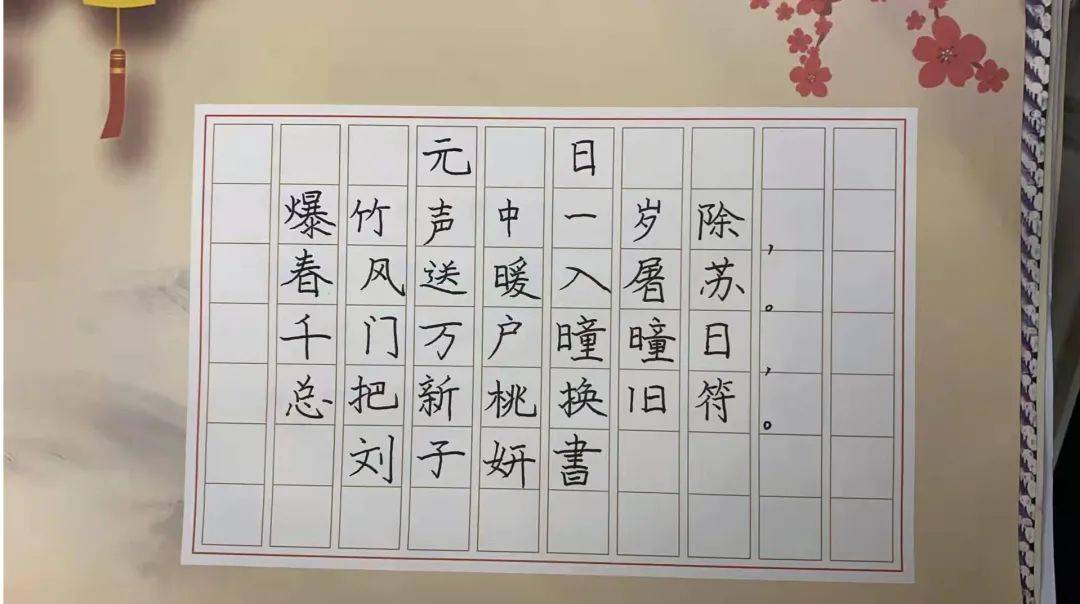 元日
爆竹声中一岁除，
春风送暖入屠苏。
千门万户曈曈日，
总把新桃换旧符。
刘子妍書